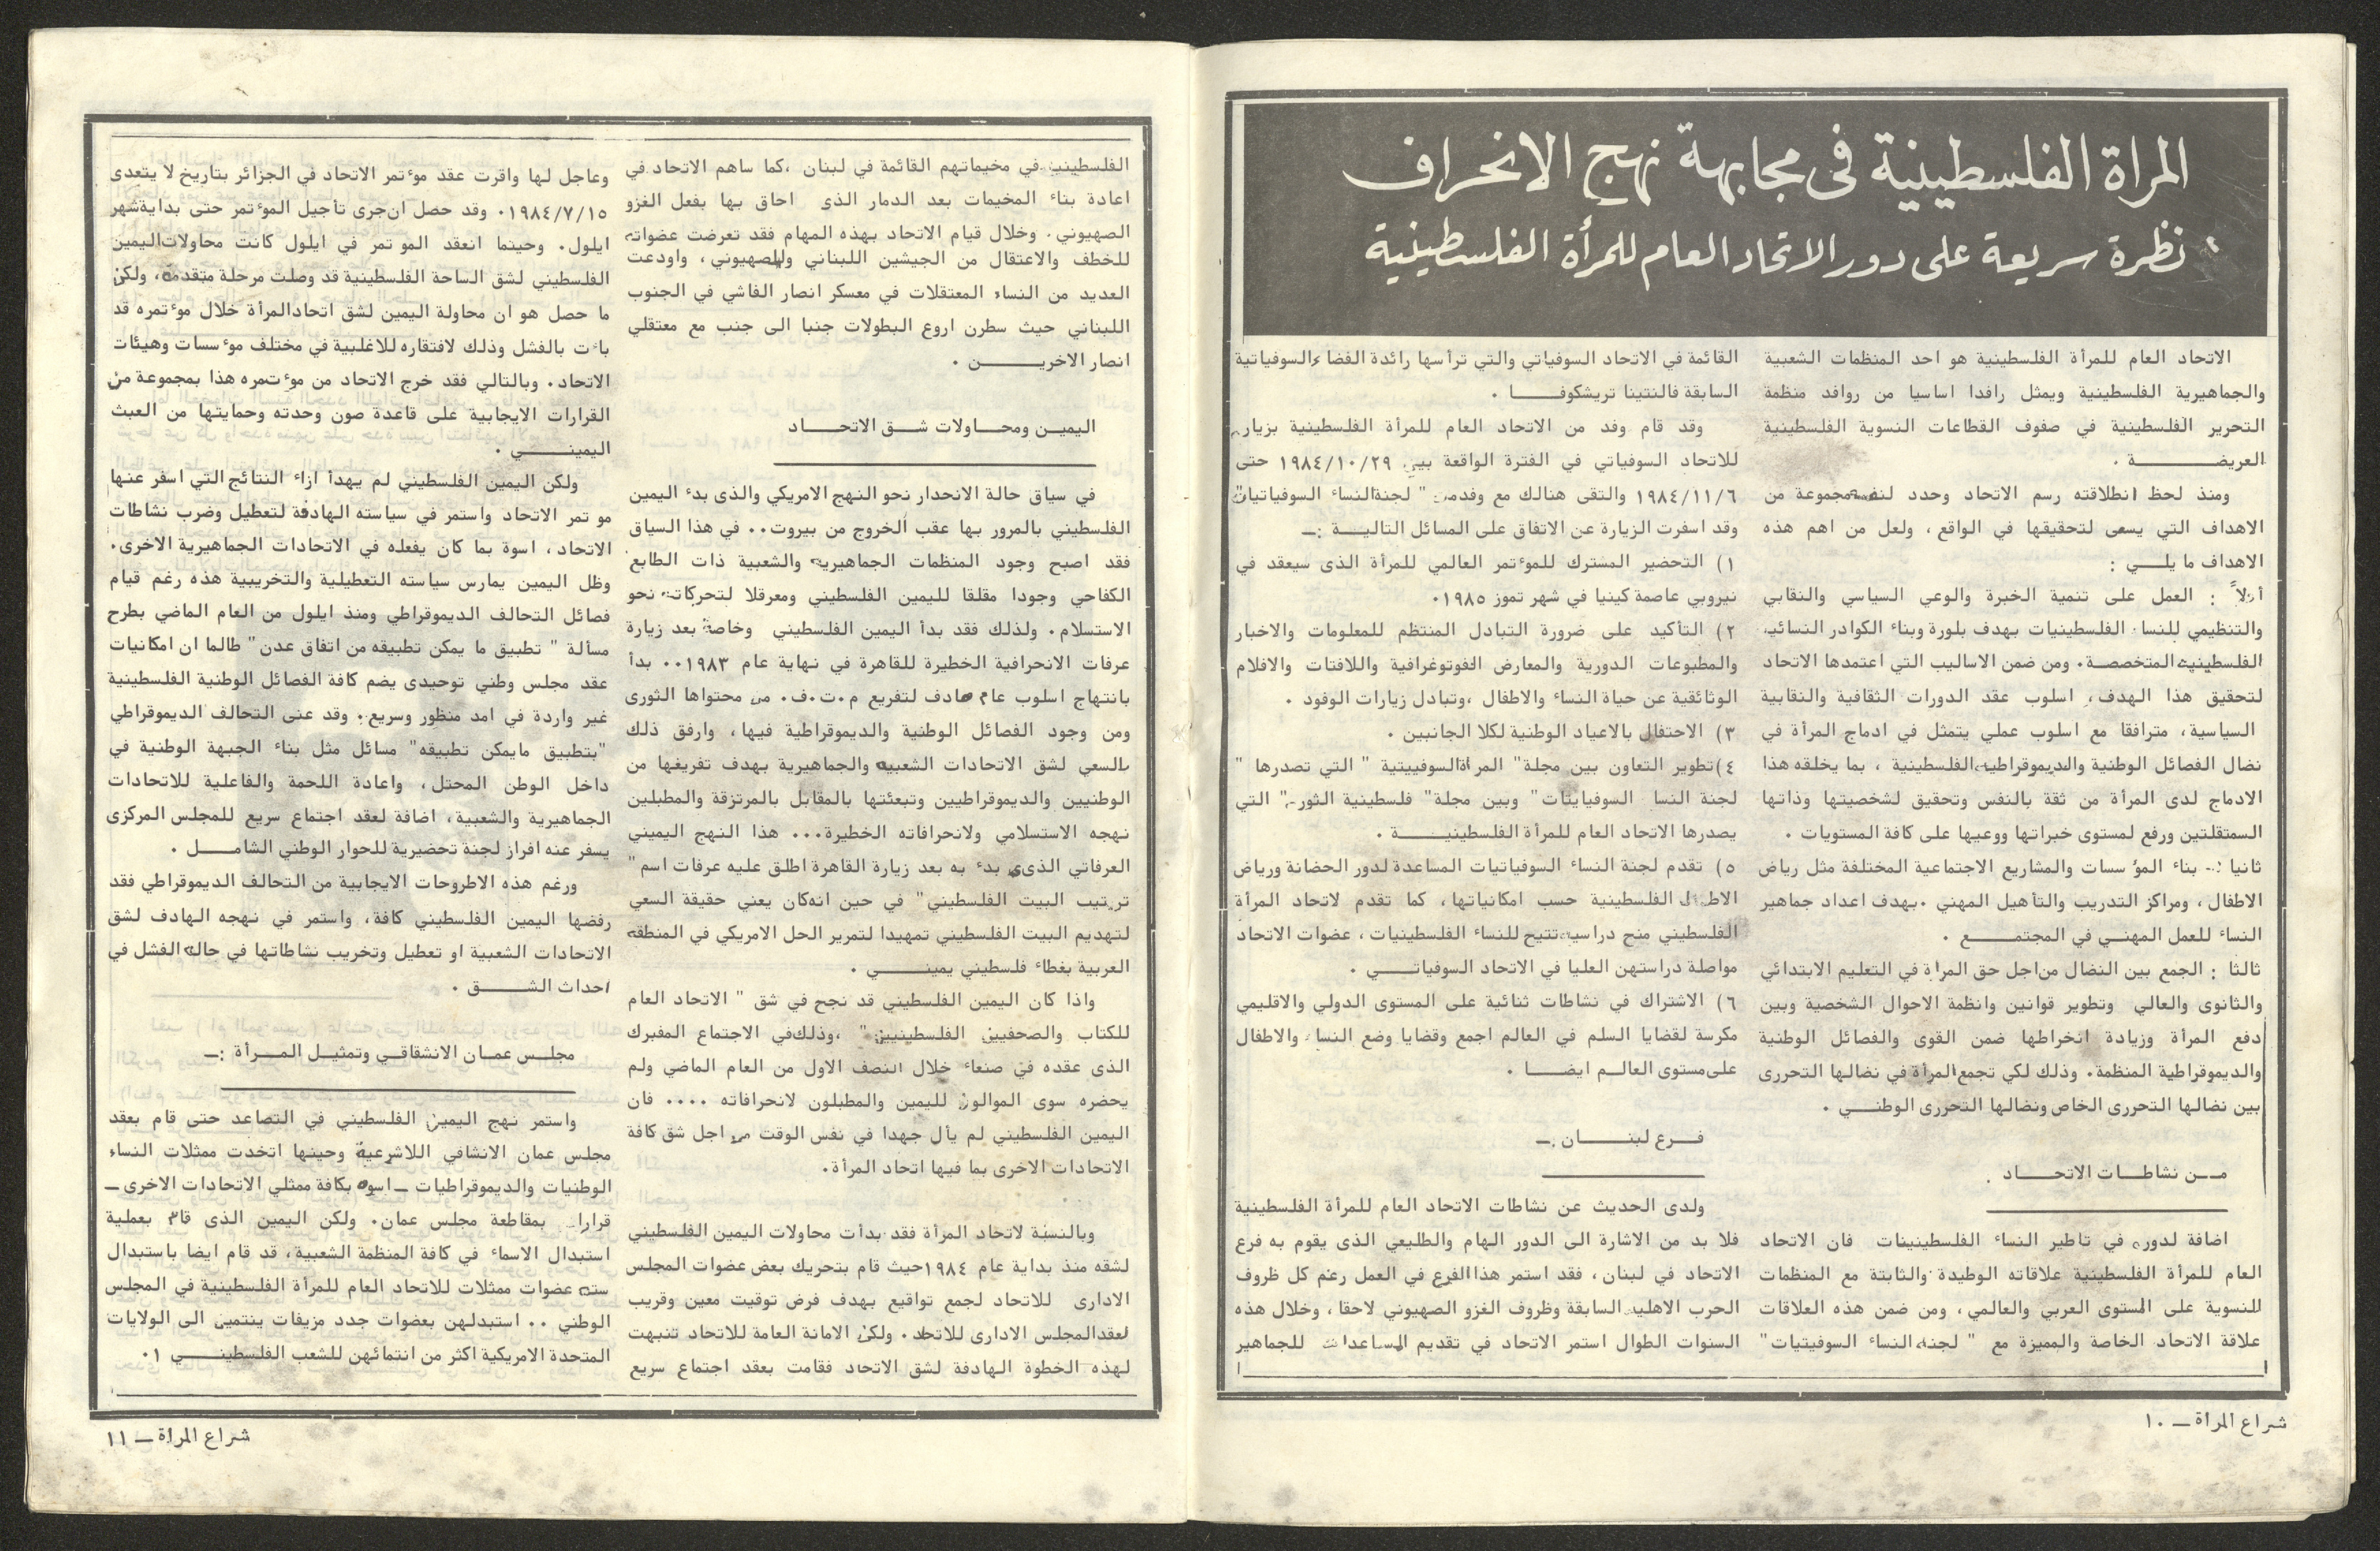 المراة الفلسطينية في مجابهة نهج الانحراف
نظرة سريعة على دور الاتحاد العام للمرأة الفلسطينية
الاتحاد العام للمرأة الفلسطينية هو احد المنظمات الشعبية
والجماهيرية الفلسطينية ويمثل رافدا اساسيا من روافد منظمة
التحرير الفلسطينية في صفوف القطاعات النسوية الفلسطينية
العريضـــــــــة .
ومنذ لحظ انطلاقته رسم الاتحاد وحدد لنفسه مجموعة من
الاهداف التي يسعى لتحقيقها في الواقع ، ولعل من اهم هذه
الاهداف ما يلـــي :
أولاً : العمل على تنمية الخبرة والوعي السياسي والنقابي
والتنظيمي للنساء الفلسطينيات بهدف بلورة وبناء الكوادر النسائية
الفلسطينيه المتخصصـة. ومن ضمن الاساليب التي اعتمدها الاتحاد
لتحقيق هذا الهدف، اسلوب عقد الدورات الثقافية والنقابية
السياسية، مترافقا مع اسلوب عملي يتمثل في ادماج المرأة في
نضال الفصائل الوطنية والديموقراطيه الفلسطينية ، بما يخلقه هذا
الادماج لدى المرأة من ثقة بالنفس وتحقيق لشخصيتها وذاتها
السمتقلتين ورفع لمستوى خبراتها ووعيها على كافة المستويات .
ثانيا :- بناء المؤسسات والمشاريع الاجتماعية المختلفة مثل رياض
الاطفال ، ومراكز التدريب والتأهيل المهني .بهدف اعداد جماهير
النساء للعمل المهنـي في المجتمـــــع .
ثالثا : الجمع بين النضال من اجل حق المرأة في التعليم الابتدائي
والثانوى والعالي وتطوير قوانين وانظمة الاحوال الشخصية وبين
دفع المرأة وزيادة انخراطها ضمن القوى والفصائل الوطنية
والديموقراطية المنظمة. وذلك لكي تجمع المرأة في نضالها التحررى
بين نضالها التحررى الخاص ونضالها التحررى الوطنـــي .
مــن نشاطــات الاتحـــاد .
اضافة لدوره في تاطير النساء الفلسطينيات فان الاتحاد
العام للمرأة الفلسطينية علاقاته الوطيدة والثابتة مع المنظمات
النسوية على المستوى العربي والعالمي ، ومن ضمن هذه العلاقات
علاقة الاتحاد الخاصة والمميزة مع " لجنه النساء السوفيتيات"
القائمة في الاتحاد السوفياتي والتي ترأسها رائدة الفضاء السوفياتية
السابقة فالنتينا تريشكوفـــــا .
وقد قام وفد من الاتحاد العام للمرأة الفلسطينية بزيارة
للاتحاد السوفياتي في الفترة الواقعة بين ١٩٨٤/١٠/٢٩ حتى
١٩٨٤/١١/٦ والتقى هنالك مع وفد من " لجنة النساء السوفياتيات"
وقد اسفرت الزيارة عن الاتفاق على المسائل التاليـــة :ــ
١) التحضير المشترك للموٴتمر العالمي للمرأة الذى سيعقد في
نيروبي عاصمة كينيا في شهر تموز ١٩٨٥.
٢) التأكيد على ضرورة التبادل المنتظم للمعلومات والاخبار
والمطبوعات الدورية والمعارض الفوتوغرافية واللافتات والافلام
الوثائقية عن حياة النساء والاطفال ،وتبادل زيارات الوفود .
٣) الاحتفال بالاعياد الوطنية لكلا الجانبين .
٤)تطوير التعاون بين مجلة" المراة السوفييتية " التي تصدرها "
لجنة النسا السوفياتيات" وبين مجلة" فلسطينية الثورة" التي
يصدرها الاتحاد العام للمرأة الفلسطينيـــــة .
٥) تقدم لجنة النساء السوفياتيات المساعدة لدور الحضانة ورياض
الاطفال الفلسطينية حسب امكانياتها، كما تقدم لاتحاد المرأة
الفلسطيني منح دراسيه تتيح للنساء الفلسطينيات ، عضوات الاتحاد
مواصلة دراستهن العليا في الاتحاد السوفياتــــي .
٦) الاشتراك في نشاطات ثنائية على المستوى الدولي والاقليمي
مكرسة لقضايا السلم في العالم اجمع وقضايا وضع النساء والاطفال
على مستوى العالــم ايضــــا .
فـــرع لبنــــــان :ــ
ولدى الحديث عن نشاطات الاتحاد العام للمرأة الفلسطينية
فلا بد من الاشارة الى الدور الهام والطليعي الذى يقوم به فرع
الاتحاد في لبنان، فقد استمر هذا الفرع في العمل رغم كل ظروف
الحرب الاهليه السابقة وظروف الغزو الصهيوني لاحقا ، وخلال هذه
السنوات الطوال استمر الاتحاد في تقديم المساعدات للجماهير
شراع المراة ــ ١٠
الفلسطينيه في مخيماتهم القائمة في لبنان ،كما ساهم الاتحاد في
اعادة بناء المخيمات بعد الدمار الذى احاق بها بفعل الغزو
الصهيوني. وخلال قيام الاتحاد بهذه المهام فقد تعرضت عضواته
للخطف والاعتقال من الجيشين اللبناني والصهيوني ، واودعت
العديد من النساء المعتقلات في معسكر انصار الفاشي في الجنوب
اللبناني حيث سطرن اروع البطولات جنبا الى جنب مع معتقلي
انصار الاخريـــــــن .
اليميــن ومحــاولات شــق الاتحـــاد
في سياق حالة الانحدار نحو النهج الامريكي والذى بدء اليمين
الفلسطيني بالمرور بها عقب الخروج من بيروت.. في هذا السياق
فقد اصبح وجود المنظمات الجماهيريه والشعبية ذات الطابع
الكفاحي وجودا مقلقا لليمين الفلسطيني ومعرقلا لتحركاته نحو
الاستسلام. ولذلك فقد بدأ اليمين الفلسطيني وخاصة بعد زيارة
عرفات الانحرافية الخطيرة للقاهرة في نهاية عام ١٩٨٣.. بدأ
بانتهاج اسلوب عام هادف لتفريع م.ت.ف. من محتواها الثورى
ومن وجود الفصائل الوطنية والديموقراطية فيها، وارفق ذلك
بالسعي لشق الاتحادات الشعبيه والجماهيرية بهدف تفريغها من
الوطنيين والديموقراطيين وتبعئتها بالمقابل بالمرتزقة والمطبلين
نهجه الاستسلامي ولانحرافاته الخطيرة... هذا النهج اليميني
العرفاتي الذى بدء به بعد زيارة القاهرة اطلق عليه عرفات اسم"
ترتيب البيت الفلسطيني" في حين انه كان يعني حقيقة السعي
لتهديم البيت الفلسطيني تمهيدا لتمرير الحل الامريكي في المنطقه
العربية بغطاء فلسطيني يمينـــــي .
واذا كان اليمين الفلسطيني قد نجح في شق " الاتحاد العام
للكتاب والصحفيين الفلسطينيين" ،وذلك في الاجتماع المفبرك
الذى عقده في صنعاء خلال النصف الاول من العام الماضي ولم
يحضره سوى الموالون لليمين والمطبلون لانحرافاته .... فان
اليمين الفلسطيني لم يأل جهدا في نفس الوقت من اجل شق كافة
الاتحادات الاخرى بما فيها اتحاد المرأة.
وبالنسبة لاتحاد المرأة فقد بدأت محاولات اليمين الفلسطيني
لشقه منذ بداية عام ١٩٨٤ حيث قام بتحريك بعض عضوات المجلس
الادارى للاتحاد لجمع تواقيع بهدف فرض توقيت معين وقريب
لعقد المجلس الادارى للاتحاد. ولكن الامانة العامة للاتحاد تنبهت
لهذه الخطوة الهادفة لشق الاتحاد فقامت بعقد اجتماع سريع
وعاجل لها واقرت عقد موٴتمر الاتحاد في الجزائر بتاريخ لا يتعدى
١٩٨٤/٧/١٥. وقد حصل ان جرى تأجيل الموٴتمر حتى بداية شهر
ايلول. وحينما انعقد الموتمر في ايلول كانت محاولات اليمين
الفلسطيني لشق الساحة الفلسطينية قد وصلت مرحلة متقدمة، ولكن
ما حصل هو ان محاولة اليمين لشق اتحاد المرأة خلال موٴتمره قد
باءت بالفشل وذلك لافتقاره للاغلبية في مختلف موٴسسات وهيئات
الاتحاد. وبالتالي فقد خرج الاتحاد من موٴتمره هذا بمجموعة من
القرارات الايجابية على قاعدة صون وحدته وحمايتها من العبث
اليمينـــــي .
ولكن اليمين الفلسطيني لم يهدأ ازاء النتائج التي اسفر عنها
موتمر الاتحاد واستمر في سياسته الهادفة لتعطيل وضرب نشاطات
الاتحاد ، اسوة بما كان يفعله في الاتحادات الجماهيرية الاخرى.
وظل اليمين يمارس سياسته التعطيلية والتخريبية هذه رغم قيام
فصائل التحالف الديموقراطي ومنذ ايلول من العام الماضي بطرح
مسألة " تطبيق ما يمكن تطبيقه من اتفاق عدن " طالما ان امكانيات
عقد مجلس وطني توحيدى يضم كافة الفصائل الوطنية الفلسطينية
غير واردة في امد منظور وسريع. وقد عنى التحالف الديموقراطي
"بتطبيق مايمكن تطبيقه" مسائل مثل بناء الجبهة الوطنية في
داخل الوطن المحتل، واعادة اللحمة والفاعلية للاتحادات
الجماهيرية والشعبية، اضافة لعقد اجتماع سريع للمجلس المركزى
يسفر عنه افراز لجنة تحضيرية للحوار الوطني الشامــــل .
ورغم هذه الاطروحات الايجابية من التحالف الديموقراطي فقد
رفضها اليمين الفلسطيني كافة، واستمر في نهجه الهادف لشق
الاتحادات الشعبية او تعطيل وتخريب نشاطاتها في حاله الفشل في
احداث الشـــــق .
مجلــس عمــان الانشقاقــي وتمثيــل المــرأة :ــ
واستمر نهج اليمين الفلسطيني في التصاعد حتى قام بعقد
مجلس عمان الانشاقي اللاشرعية وحينها اتخدت ممثلات النساء
الوطنيات والديموقراطيات ــ اسوه بكافة ممثلي الاتحادات الاخرى ــ
قرارا بمقاطعة مجلس عمان. ولكن اليمين الذى قام بعملية
استبدال الاسماء في كافة المنظمة الشعبية، قد قام ايضا باستبدال
سته عضوات ممثلات للاتحاد العام للمرأة الفلسطينية في المجلس
الوطني .. استبدلهن بعضوات جدد مزيفات ينتمين الى الولايات
المتحدة الامريكية اكثر من انتمائهن للشعب الفلسطينــــي .١
شراع المراة ــ ١١